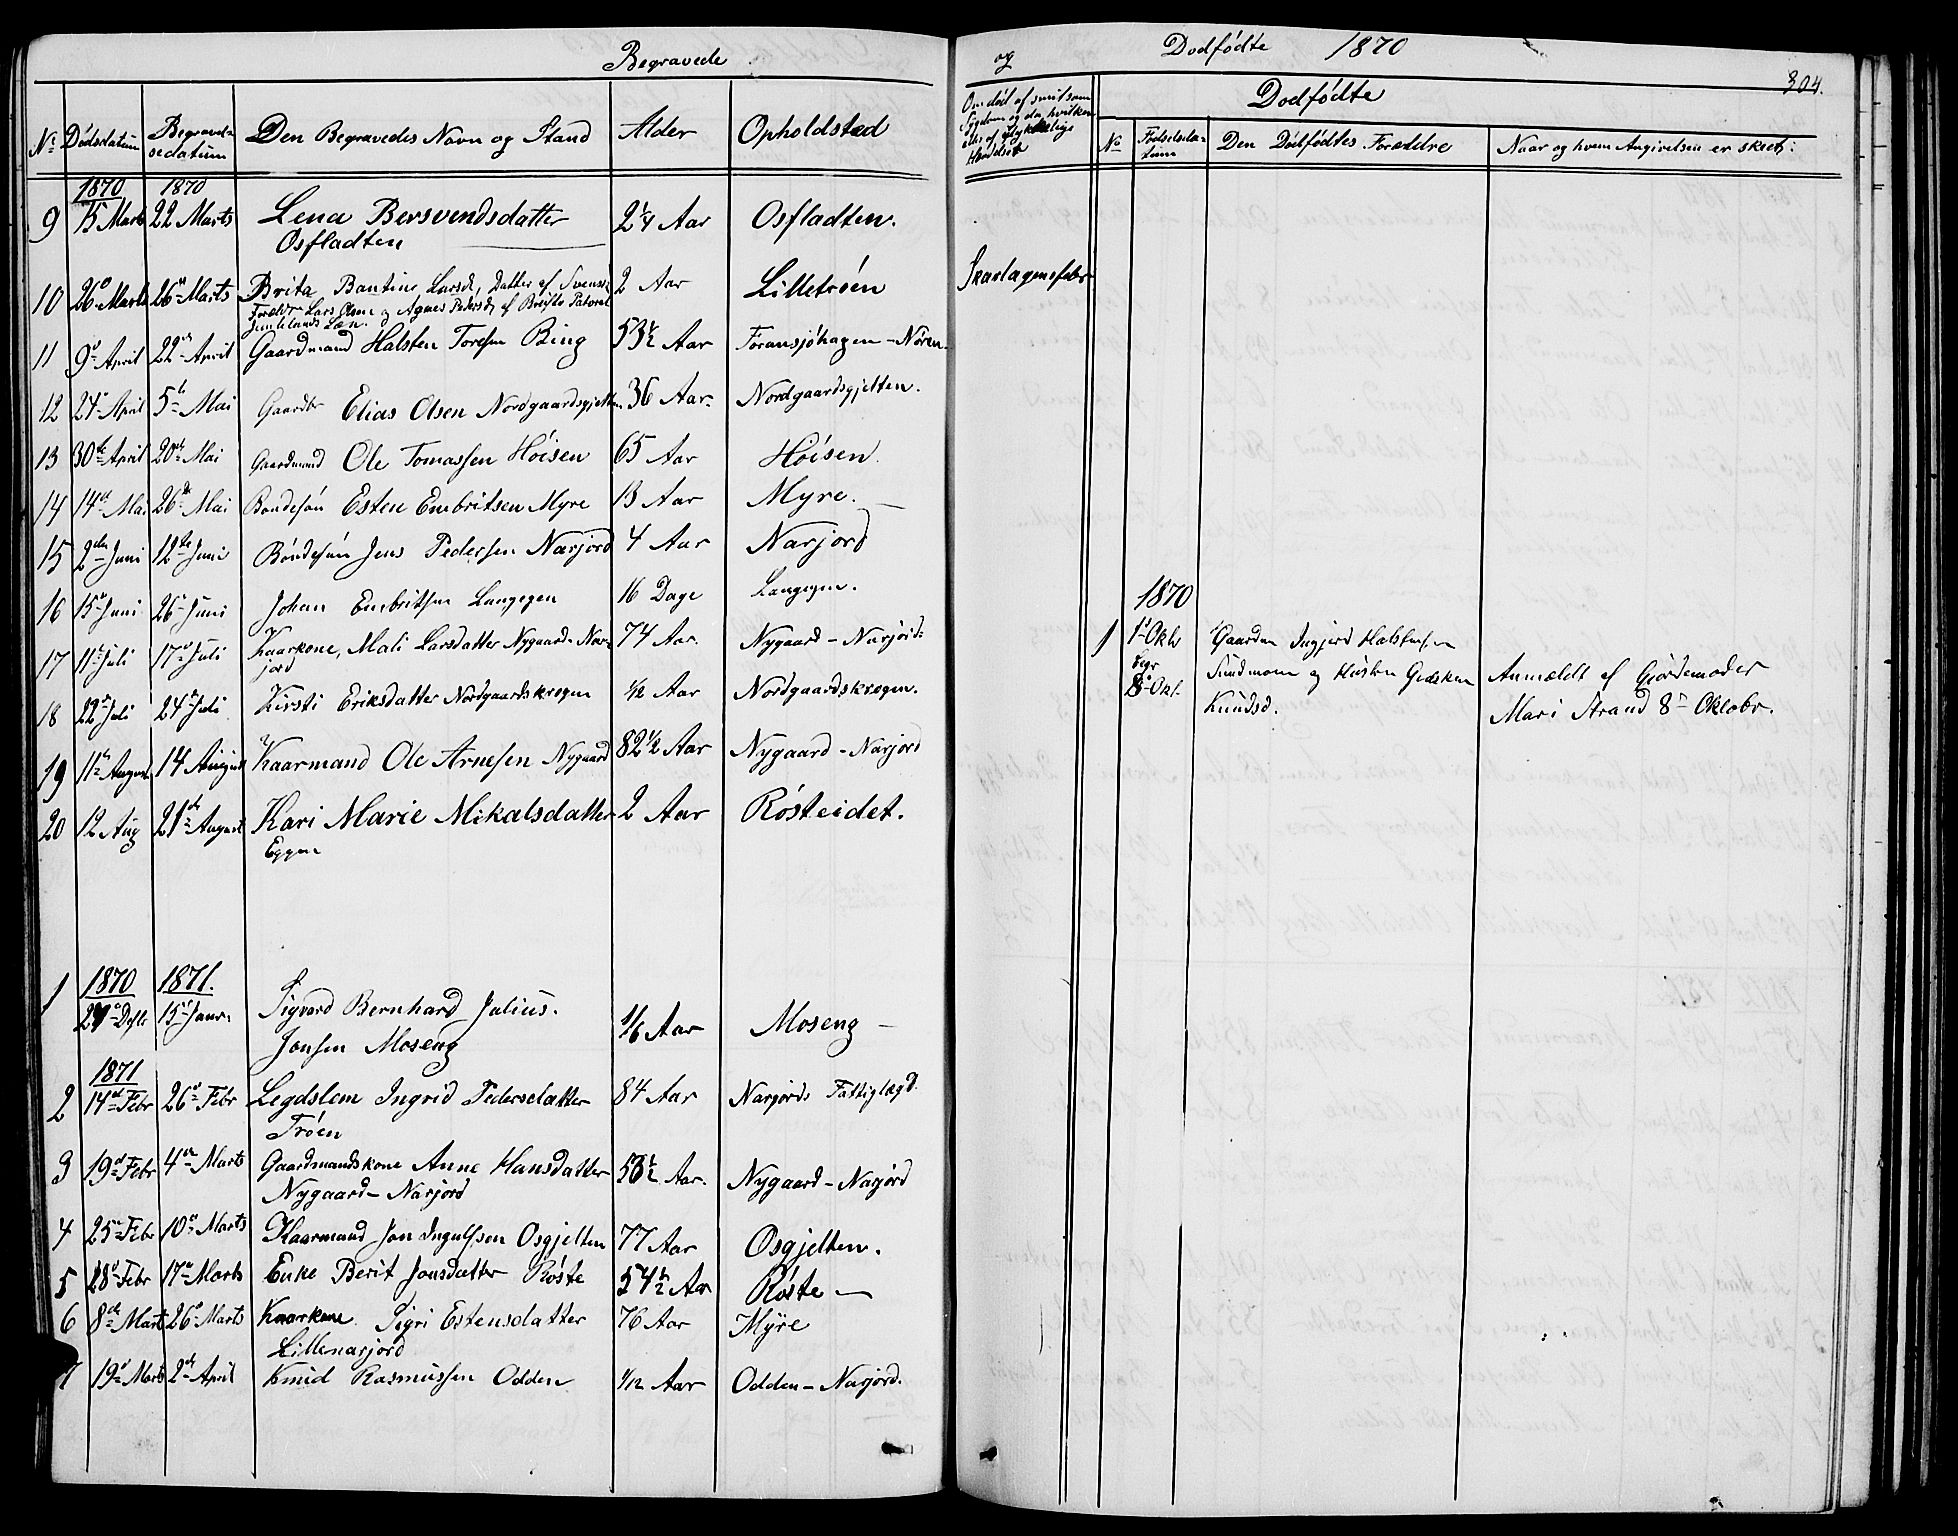 Begravede
og Dodfødte 1870
304.
No Dödsdatum Begravelsedatum Den Begravedes Navn og Stand Alder Opholdsted
Om död af smitsom Sygdom og da hvilken eller af ulykkelige Hændelser
Dodfødte
No Fødselsdatum Den Dödfødtes Forældre Naar og hvem Angivelsen er skeet:
1870 1870
9 15 Marts 22 Marts Lena Bersvendsdatter 2 1/4 Aar Osfladten.
Osfladten
10 26 Marts 26 Marts Brita Bantine Larsd, Datter af Svenske 2 Aar Lilletröen Skarlagensfeber
Forældr Lars Olsen og Agnes Pedersd, af
Jemtelands Læn.
11 9 April 22 April Gaardmand Halsten Toresen Bing 53 1/2 Aar Foransjöhagen - Nören.
12 24 April 5te Mai Gaardbr Elias Olsen Nordgaardsgjelten 36 Aar. Nordgaardsgjelten.
13 30te April 20de Mai Gaardmand Ole Tomassen Höisen 65 Aar Höisen.
14 14de Mai 26de Mai Bondesön Esten Embritsen Myre 13 Aar Myre.
15 2den Juni 12te Juni Böndesön Jens Pedersen Narjord 4 Aar Narjord
16 15 Juni 26 Juni Johan Embritsen Langegen 16 Dage Langegen.
17 11 Juli 17 Juli Kaarkone, Mali Larsdatter Nygaard - Nar- 74 Aar. Nygaard - Narjord:
jord
18 22 Juli 24 Juli Kirsti Eriksdatter Nordgaardskrogen 1/2 Aar Nordgaardskrogen.
19 11te August 14 August Kaarmand Ole Arnesen Nygaard 82 1/2 Aar Nygaard - Narjord
20 12 Aug 21de August Kari Marie Mikalsdatter 2 Aar Rösteidet.
Eggen
1 1870 1871.
29 Decbr 15 Janr. Sigvard Bernhard Julius.
Jonsen Moseng 1/6 Aar Moseng
1871
2 14de Febr 26 Febr Legdslem Ingrid Pedersdatter 84 Aar Narjords Fattiglægd.
Tröen
3 19 Febr 4de Marts Gaardmandskone Anne Hansdatter 53 1/2 Aar. Nygaard - Narjord
Nygaard - Narjord
4 25 Febr 10 Marts Kaarmand Jon Ingulfsen Osgjelten 77 Aar Osgjelten.
5 28 Febr 17 Marts Enke Berit Jonsdatter Röste 54 1/2 Aar Röste
6 8de Marts 26 Marts Kaarkone Sigri Estensdatter 76 Aar Myre
Lillenarjord
7 19 Marts 2de April Knud Rasmussen Odden 1/12 Aar Odden - Narjord.
1870
1 1 Oktr Gaardm Ingjerd Halstens
Begr Sundmoen og Hustru Gjedsken Anmeldt af Gjordemoder
8 Okt. Knudsd. Mari Strand 8de Oktobr.